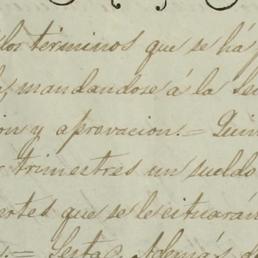 los terminos que se há
mandandose á la
y aprovacion.= Quin
trimestres un sueldo
que se le cituarán
= Sexta Además